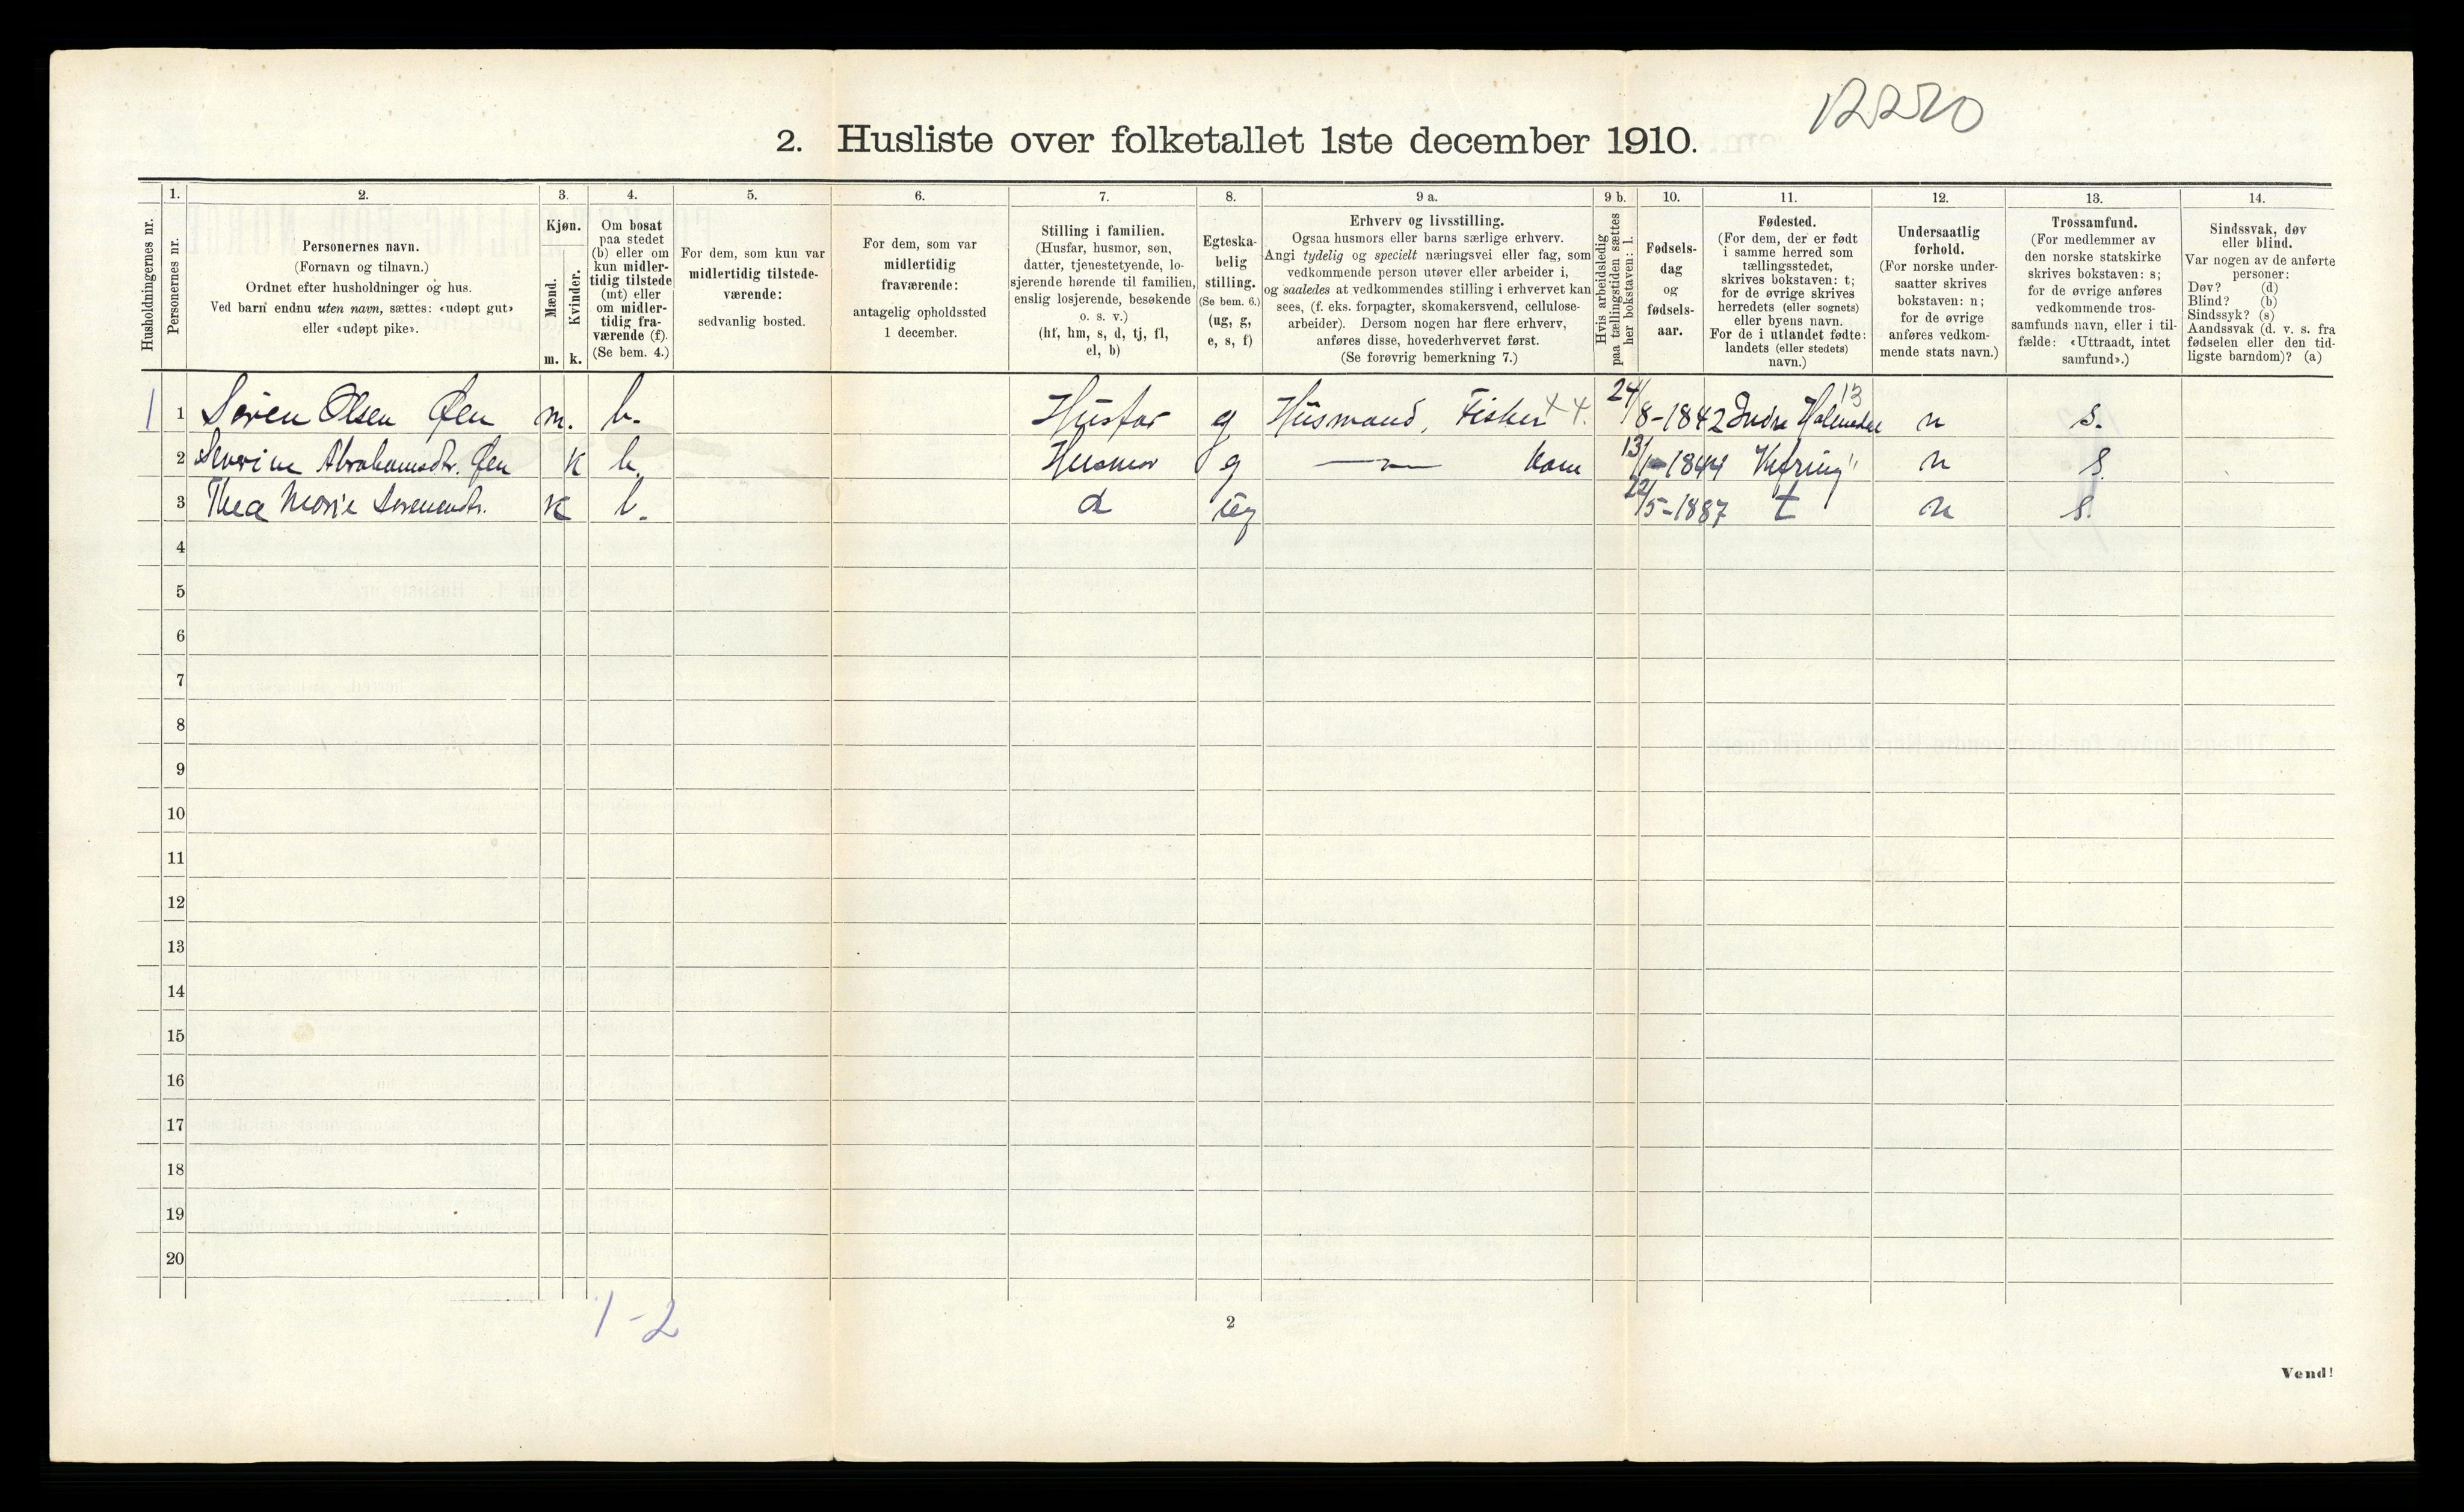 12220
2. Husliste over folketallet 1ste december 1910.
Husholdningernes nr.
1.
Personernes nr.
2.
Personernes navn.
(Fornavn og tilnavn.)
Ordnet efter husholdninger og hus.
Ved barn endnu uten navn, sættes: «udøpt gut»
eller «udøpt pike».
3.
Kjøn.
Mænd.
m.
Kvinder.
k.
4.
Om bosat
paa stedet
(b) eller om
kun midler-
tidig tilstede
(mt) eller
om midler-
tidig fra-
værende (f).
(Se bem. 4.)
5.
For dem, som kun var
midlertidig tilstede-
værende:
sedvanlig bosted.
6.
For dem, som var
midlertidig
fraværende:
antagelig opholdssted
1 december.
7.
Stilling i familien.
(Husfar, husmor, søn,
datter, tjenestetyende, lo-
sjerende hørende til familien,
enslig losjerende, besøkende
o. s. v.)
(hf, hm, s, d, tj, fl,
el, b)
8.
Egteska-
belig
stilling.
(Se bem. 6.)
(ug, g,
e, s, f)
9 a.
Erhverv og livsstilling.
Ogsaa husmors eller barns særlige erhverv.
Angi tydelig og specielt næringsvei eller fag, som
vedkommende person utøver eller arbeider i,
og saaledes at vedkommendes stilling i erhvervet kan
sees, (f. eks. forpagter, skomakersvend, cellulose-
arbeider). Dersom nogen har flere erhverv,
anføres disse, hovederhvervet først.
(Se forøvrig bemerkning 7.)
9 b.
Hvis arbeidsledig
paa tællingstiden sættes
her bokstaven: l.
10.
Fødsels-
dag
og
fødsels-
aar.
11.
Fødested.
(For dem, der er født
i samme herred som
tællingsstedet,
skrives bokstaven: t;
for de øvrige skrives
herredets (eller sognets)
eller byens navn.
For de i utlandet fødte:
landets (eller stedets)
navn.)
12.
Undersaatlig
forhold.
(For norske under-
saatter skrives
bokstaven: n;
for de øvrige
anføres vedkom-
mende stats navn.)
13.
Trossamfund.
(For medlemmer av
den norske statskirke
skrives bokstaven: s;
for de øvrige anføres
vedkommende tros-
samfunds navn, eller i til-
fælde: «Uttraadt, intet
samfund».)
14.
Sindssvak, døv
eller blind.
Var nogen av de anførte
personer:
Døv? (d)
Blind? (b)
Sindssyk? (s)
Aandssvak (d. v. s. fra
fødselen eller den tid-
ligste barndom)? (a)
1 1 Søren Olsen Øen m. b. Husfar g Husmand, Fisker 24/8-1842 Indre Holmedal 13 n s.
2 Severine Abrahamsdtr. Øen k b. Husmor g kone 13/1-1844 n s.
3 Thea Marie Sørensdtr. k b. d ug 22/5-1887 t n s.
4
5
6
7
8
9
10
11
12
13
14
15
16
17
18
19
20
1-2
2
Vend!